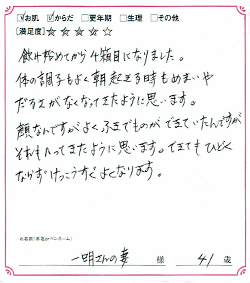 ☑お肌 ☑からだ □更年期 □生理 □その他
[満足度] ☆☆☆☆☆
飲み始めてから4箱目になりました。
体の調子もよく朝起きる時もめまいや
だるさがなくなってきたように思います。
顔なんですがよくふきでものができていたんですが
それもへってきたように思います。できてもひどく
ならずけっこうすぐよくなります。
お名前(本名orペンネーム)
一明さんの妻 様 41 歳